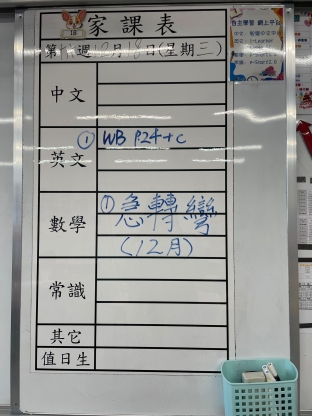 家課表
第 週12月18日(星期三)
自主學習 網上平台
中文
英文
① WB P24+c
數學
①急轉彎
(12月)
常識
其它
值日生